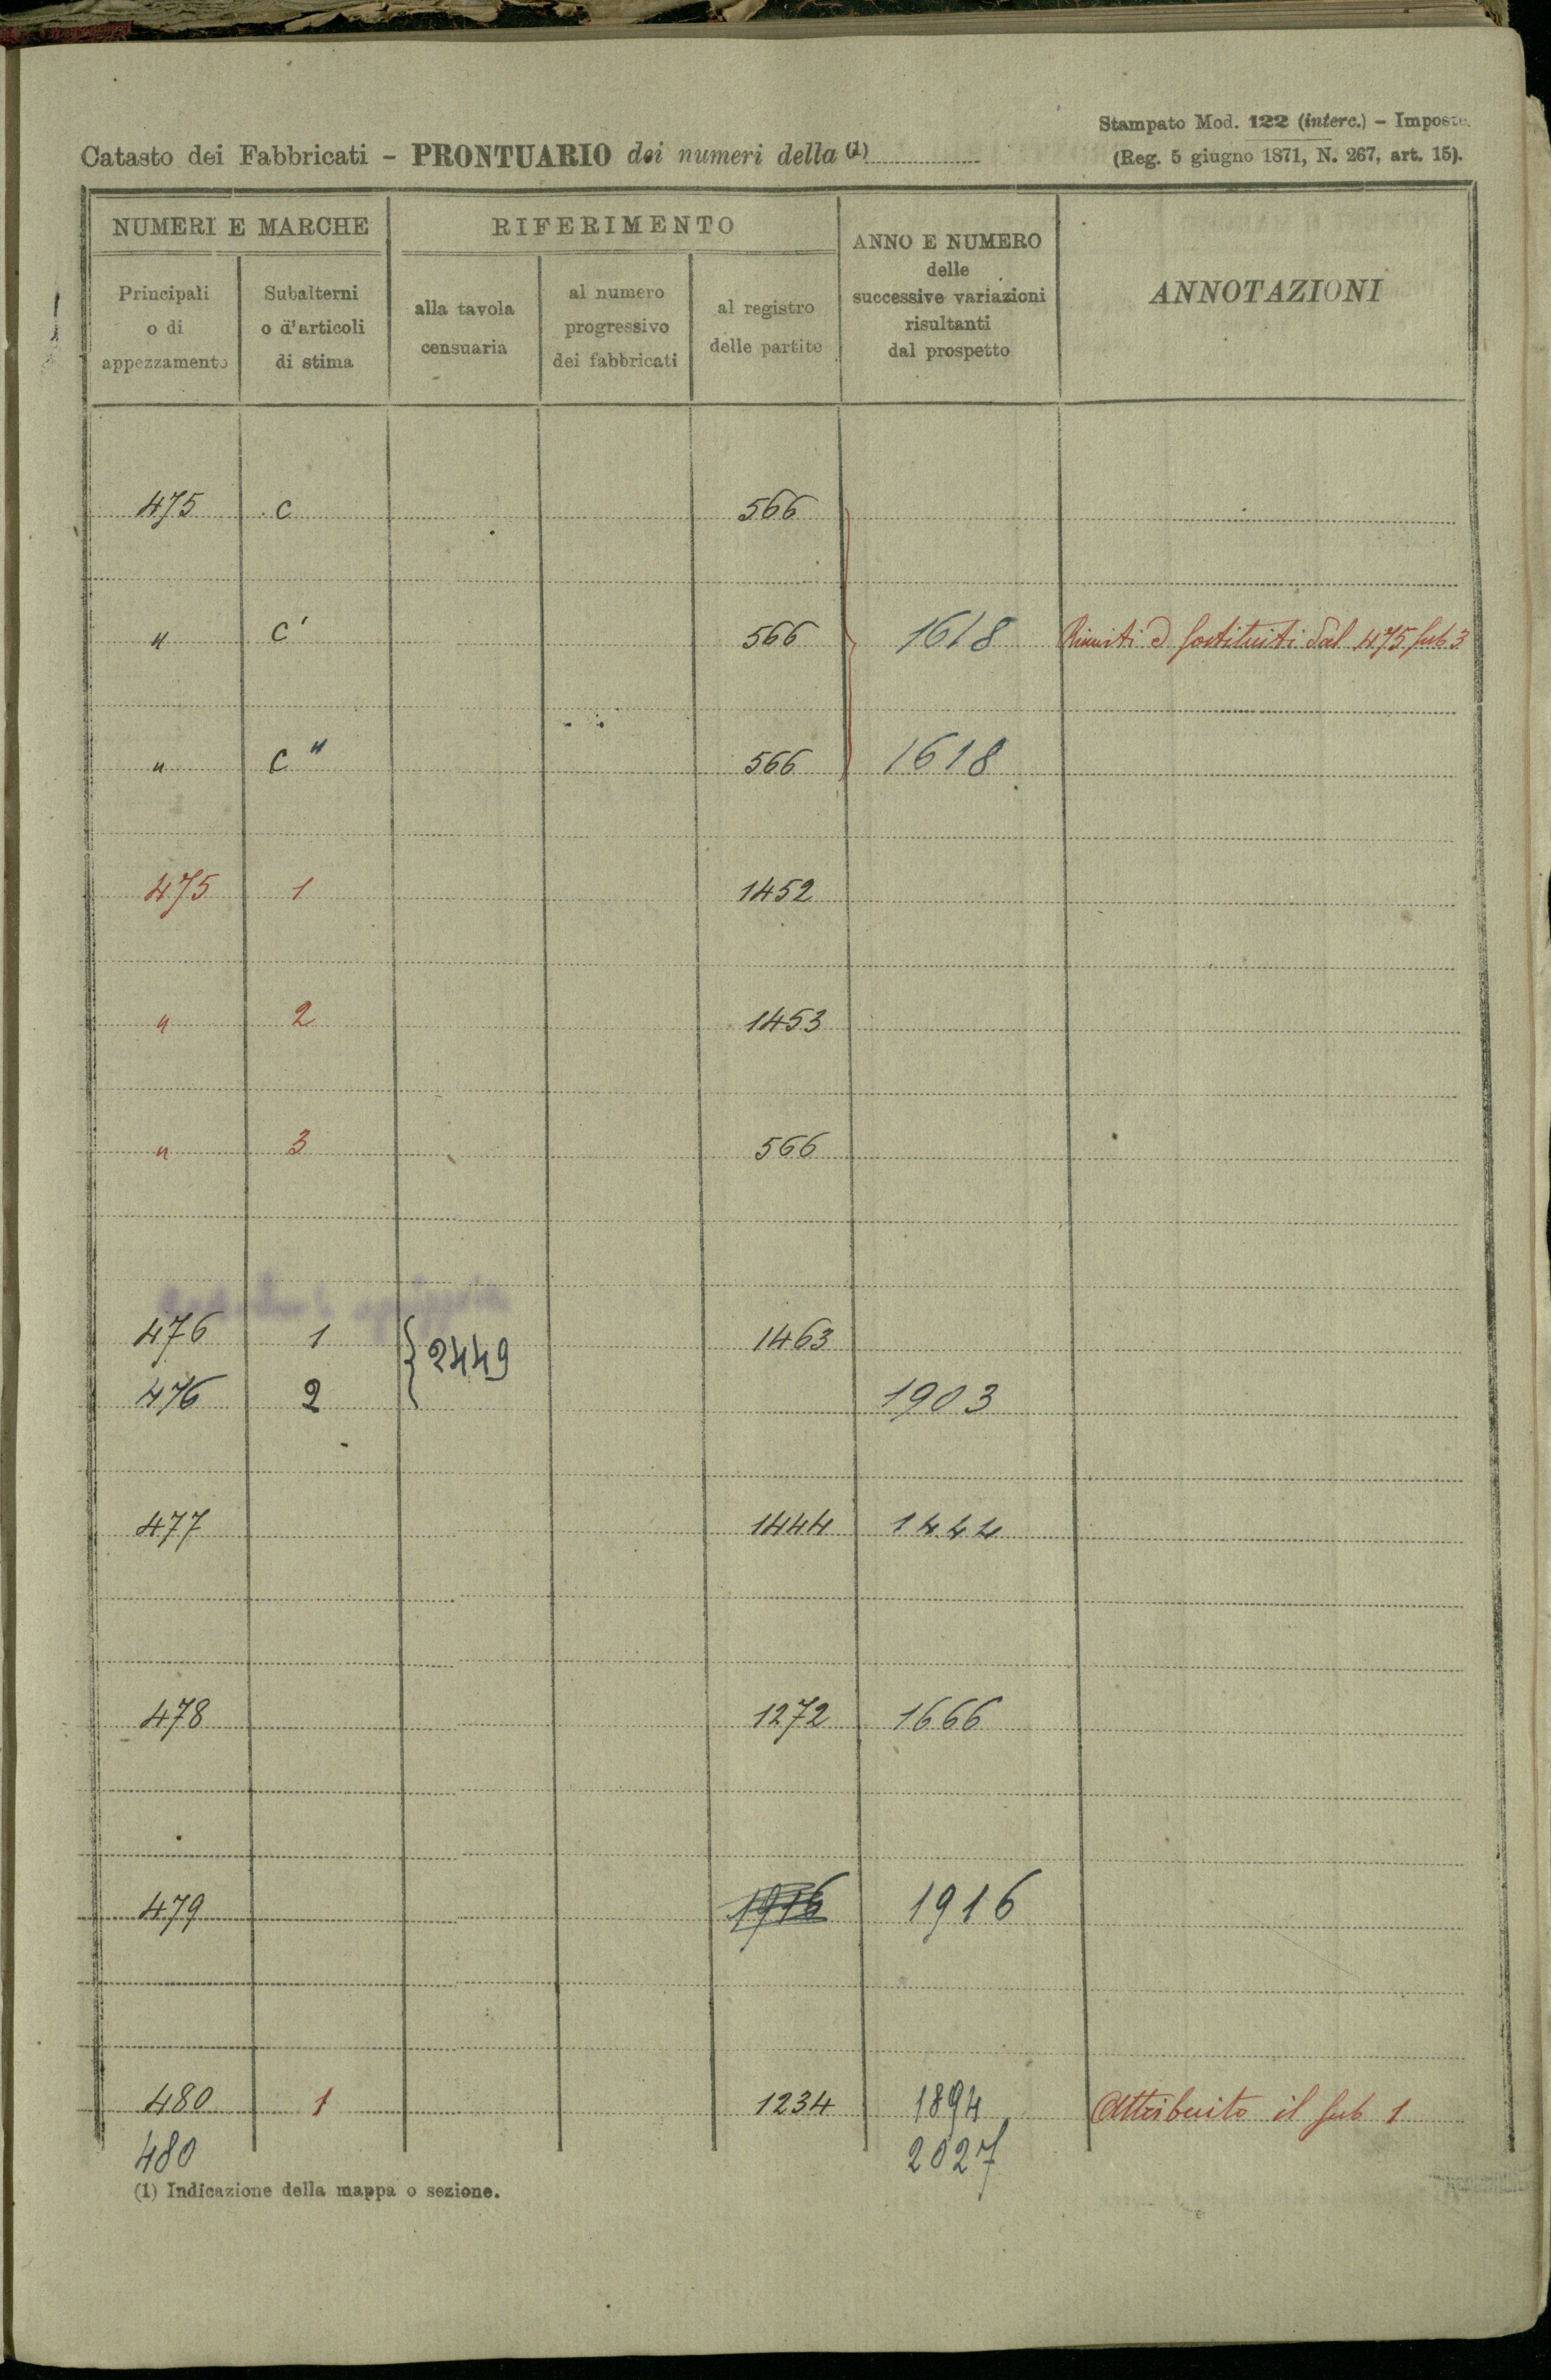 Stampato Mod. 122 (interc.) – Imposte.
Catasto dei Fabbricati – PRONTUARIO dei numeri della (1)
(Reg. 5 giugno 1871, N. 267, art. 15).
NUMERI E MARCHE
RIFERIMENTO
ANNO E NUMERO
delle
successive variazioni
risultanti
dal prospetto
ANNOTAZIONI
Principali
o di
appezzamento
Subalterni
o d'articoli
di stima
alla tavola
censuaria
al numero
progressivo
dei fabbricati
al registro
delle partite
475 c 566
" c' 566 1618 Riuniti e sostituiti dal 475 sub 3
" c" 566 1618
475 1 1452
" 2 1453
" 3 566
476 1 2449 1463
476 2 1903
477 1444 1444
478 1272 1666
479 1916 1916
480 1 1234 1894 Attribuito il sub 1
480 2027
(1) Indicazione della mappa o sezione.